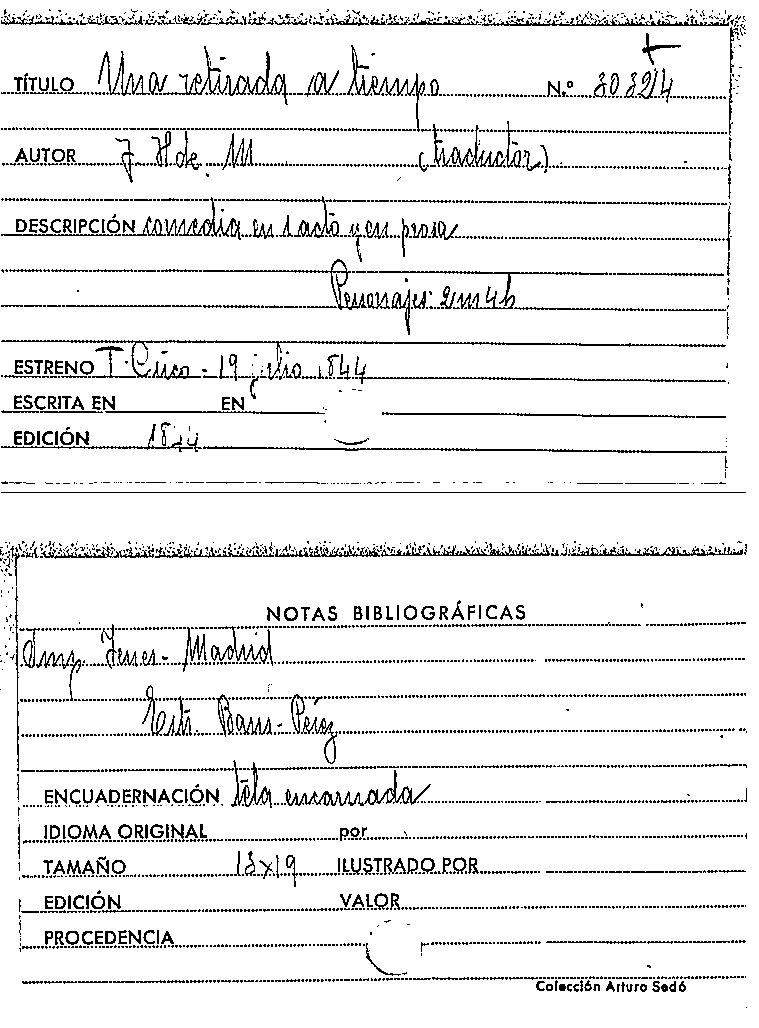 TÍTULO Una retirada a tiempo N.º 30324
AUTOR J. H de M (traductor)
DESCRIPCIÓN comedia en 1 acto y en prosa
Personajes: 2 m 4 h
ESTRENO T. Circo - 19 julio 1844
ESCRITA EN EN
EDICIÓN 1844
NOTAS BIBLIOGRÁFICAS
Imp - Madrid
Estr. - Pérez
ENCUADERNACIÓN tela encarnada
IDIOMA ORIGINAL por
TAMAÑO 13x19 ILUSTRADO POR
EDICIÓN VALOR
PROCEDENCIA
Colección Arturo Sedó